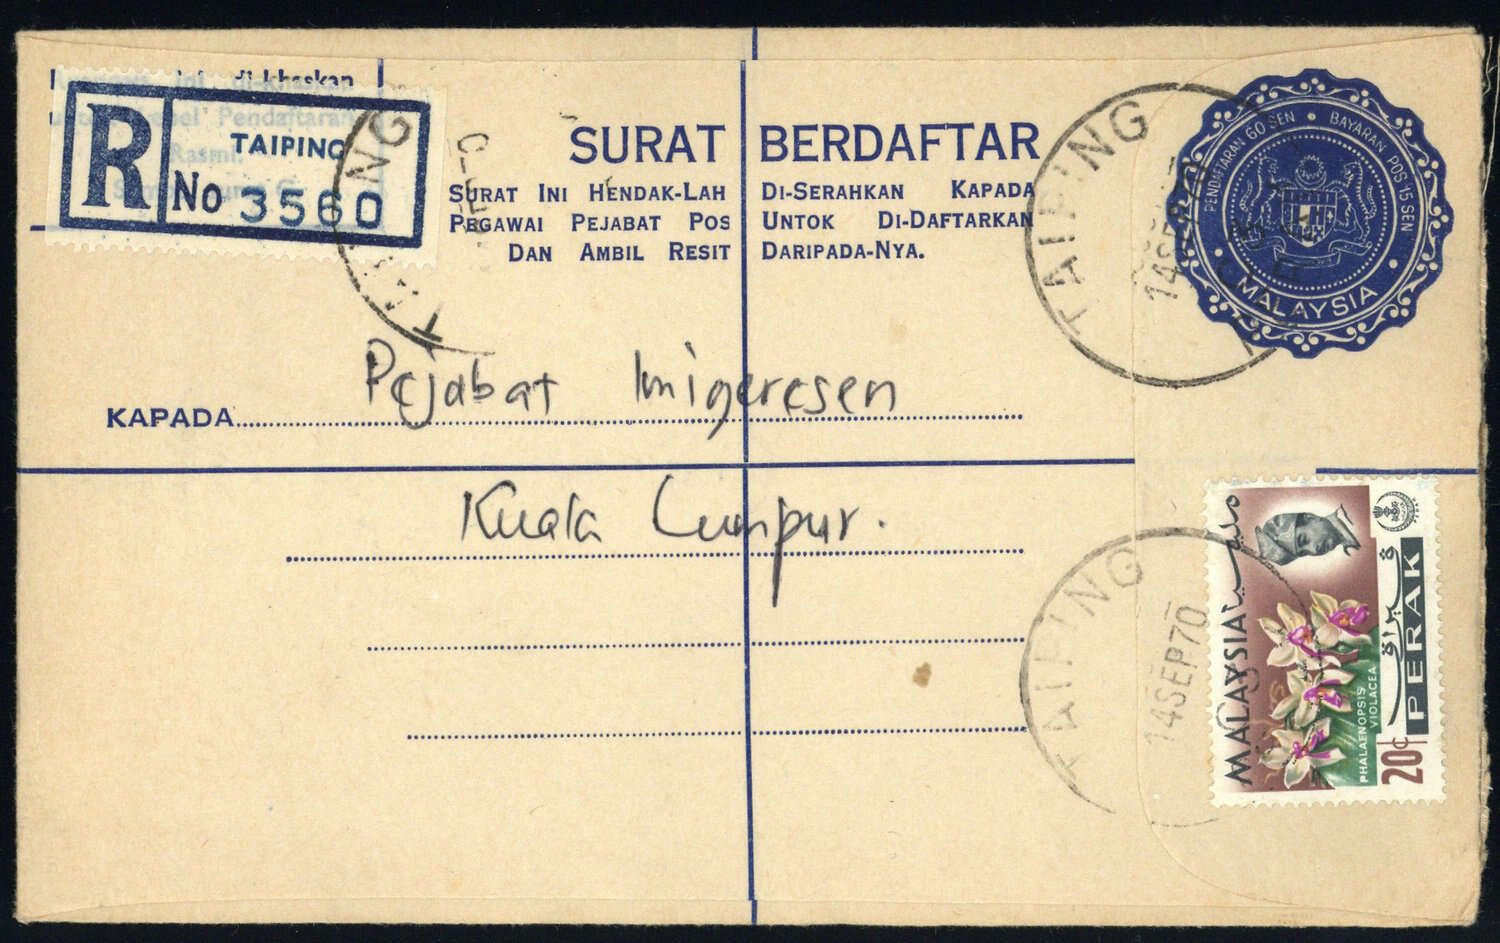 R
TAIPING
No 3560
SURAT BERDAFTAR
SURAT INI HENDAK-LAH DI-SERAHKAN KAPADA
PEGAWAI PEJABAT POS UNTOK DI-DAFTARKAN
DAN AMBIL RESIT DARIPADA-NYA.
PENDAFTARAN 60 SEN • BAYARAN POS 15 SEN
MALAYSIA
TAIPING
14SEP70
KAPADA Pejabat Imigeresen
Kuala Lumpur.
TAIPING
14SEP70
MALAYSIA مليسيا
PHALAENOPSIS
VIOLACEA
20c
PERAK
فيراق